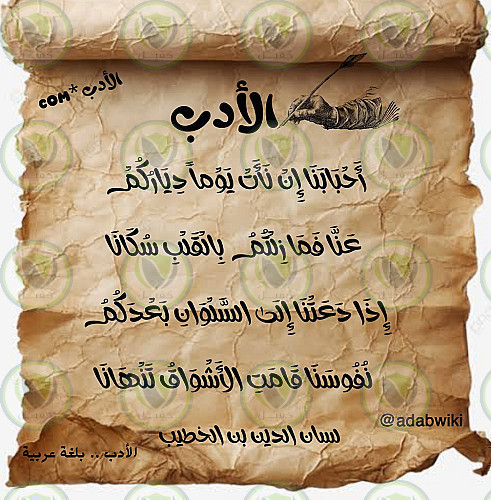 الأدب*com
الأدب
أَحْبَابَنَا إِنْ نَأَتْ يَوْماً دِيَارُكُمْ
عَنَّا فَمَا زِلْتُمُ بِالْقَلْبِ سُكَّانَا
إِذَا دَعَتْنَا إِلَى السُّلْوَانِ بَعْدَكُمُ
نُفُوسُنَا قَامَتِ الْأَشْوَاقُ تَنْهَانَا
@adabwiki
لسان الدين بن الخطيب
الأدب .. بلغة عربية